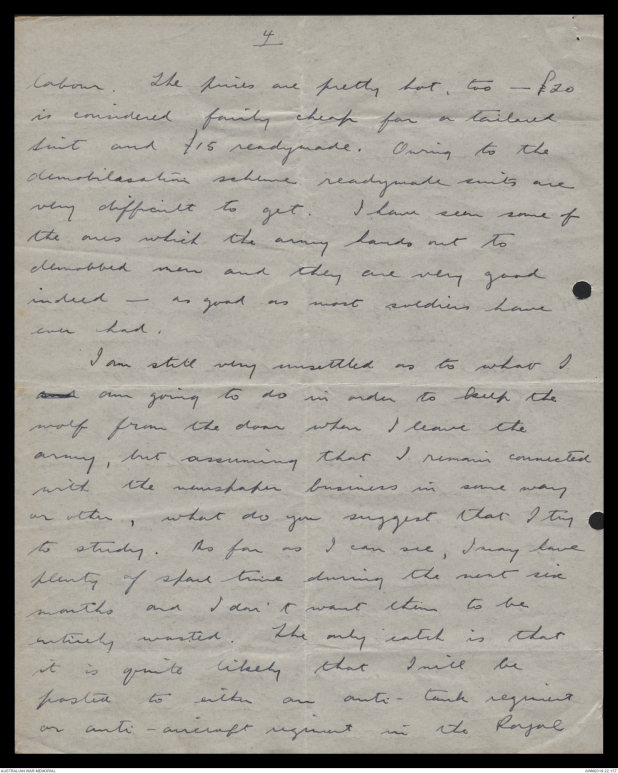 4
labour. The prices are pretty hot, too — £20
is considered fairly cheap for a tailored
suit and £15 readymade. Owing to the
demobilasation scheme readymade suits are
very difficult to get. I have seen some of
the ones which the army hands out to
demobbed men and they are very good
indeed — as good as most soldiers have
ever had.
I am still very unsettled as to what I
am going to do in order to keep the
wolf from the door when I leave the
army, but assuming that I remain connected
with the newspaper business in some way
or other, what do you suggest that I try
to study. As far as I can see, I may have
plenty of spare time during the next six
months and I don't want them to be
entirely wasted. The only catch is that
it is quite likely that I will be
posted to either an anti-tank regiment
or anti-aircraft regiment in the Royal
AUSTRALIAN WAR MEMORIAL